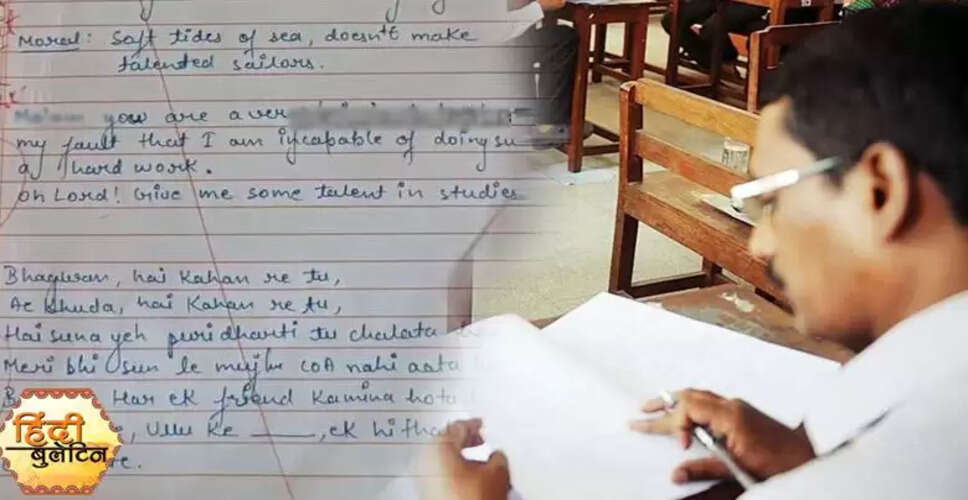 Moral: Soft tides of sea, doesn't make
talented sailors.
you are a ver
my fault that I am incapable of doing su
a hard work.
oh Lord! Give me some talent in studies
Bhagwan, hai Kahan re tu,
Ae Khuda, hai Kahan re tu,
Hai suna yeh puri dharti tu chalata
Meri bhi sun le mujhe COA nahi aata
Har ek friend Kamina hota
, Ullu ke ____, ek hi tha
re.
हिंदी
बुलेटिन